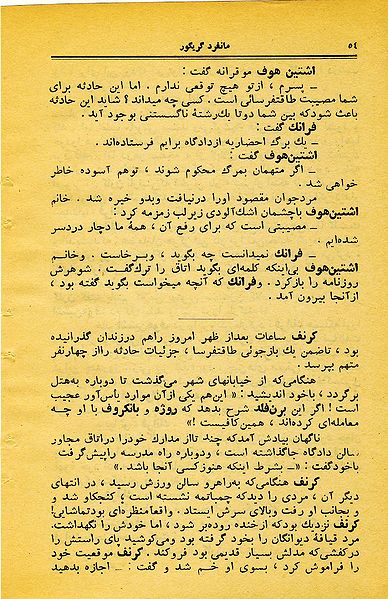 ۵٤ مانفرد گریگور
اشتین هوف موقرانه گفت :
ــ پسرم ، ازتو هیچ توقعی ندارم . اما این حادثه برای
شما مصیبت طاقتفرسائی است . کسی چه میداند ؟ شاید این حادثه
باعث شودکه بین شما دوتا یك رشتهٔ ناگسستنی بوجود آید .
فرانك گفت :
ــ یك برگ احضاریه ازدادگاه برایم فرستاده‌اند .
اشتین‌هوف گفت :
ــ اگر متهمان بمرگ محکوم شوند ، توهم آسوده خاطر
خواهی شد .
مردجوان مقصود اورا درنیافت وبدو خیره شد . خانم
اشتین‌هوف باچشمان اشك‌آلودی زیرلب زمزمه کرد :
ــ مصیبتی است که برای رفع آن ، همهٔ ما دچار دردسر
شده‌ایم .
ــ فرانك نمیدانست چه بگوید ، وبـرخاست . وخانــم
اشتین‌هوف بی‌اینکه کلمه‌ای بگوید اتاق را ترك‌گفـت . شوهرش
روزنامه را بازکرد . وفرانك که آنچه میخواست بگوید گفته بود ،
ازآنجا بیرون آمد .
کرنف ساعات بعداز ظهر امروز راهم درزندان گذرانیده
بود ، تاضمن یك بازجوئی طاقتفرسا ، جزئیات حادثه رااز چهارنفر
متهم بپرسد .
هنگامی‌که از خیابانهای شهر می‌گذشت تا دوباره به‌هتل
برگردد ، باخود اندیشید : « این‌هم یکی ازآن موارد یاس‌آور عجیب
است ! اگر این برن‌فلد شرح بدهد که روژه و بانگروف با او چــه
معامله‌ای کرده‌اند ، همین‌کافیست !»
ناگهان بیادش آمدکه چند تااز مدارك خودرا دراتاق مجاور
سالن دادگاه جاگذاشته است ، ودوباره راه مدرسه راپیش‌گرفت
باخودگفت : «ــ بشرط اینکه هنوزکسی آنجا باشد .»
کرنف هنگامی‌که به‌راهرو سالن ورزش رسید ، در انتهای
دیگر آن ، مردی را دیدکه چمباتمه نشسته است ؛ کنجکاو شد و
و بجانب او رفت وبالای سرش ایستاد . واقعامنظره‌ای بودتماشایی!
کرنف نزدیك بودکه ازخنده روده‌بر شود ، اما خودش را نگهداشت.
مرد قیافهٔ دیوانگان را بخود گرفته بود ومی‌کوشید پای راستش را
درکفشی‌که مدلش بسیار قدیمی بود فروکند . کرنف موقعیت خود
را فراموش کرد ، بسوی او خــم شـد و گفت : ــ اجازه بدهید